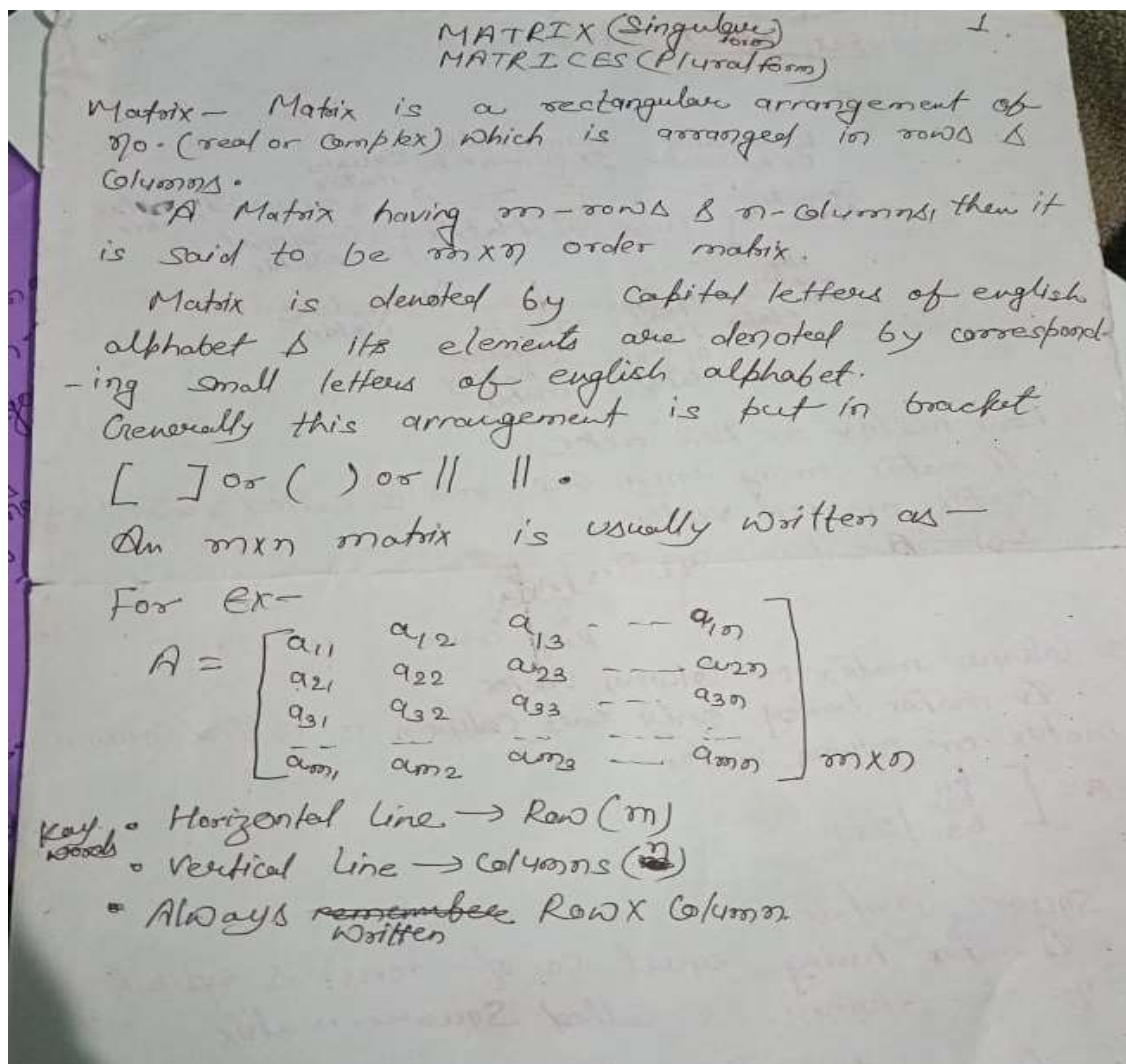 MATRIX (Singular form) 1.
MATRICES (Plural form)
Matrix – Matrix is a rectangular arrangement of
no. (real or complex) which is arranged in rows &
columns.
A Matrix having m-rows & n-columns, then it
is said to be m×n order matrix.
Matrix is denoted by Capital letters of english
alphabet & its elements are denoted by correspond-
-ing small letters of english alphabet.
Generally this arrangement is put in bracket
[ ] or ( ) or || || .
An m×n matrix is usually written as –
For ex–
a11 a12 a13 - -- a1n
A = a21 a22 a23 ---- a2n
a31 a32 a33 --- a3n
-- -- -- ---- --
am1 am2 am3 --- amn m×n
Key words • Horizental Line → Row (m)
• Vertical Line → Columns (n)
• Always written Row X Column